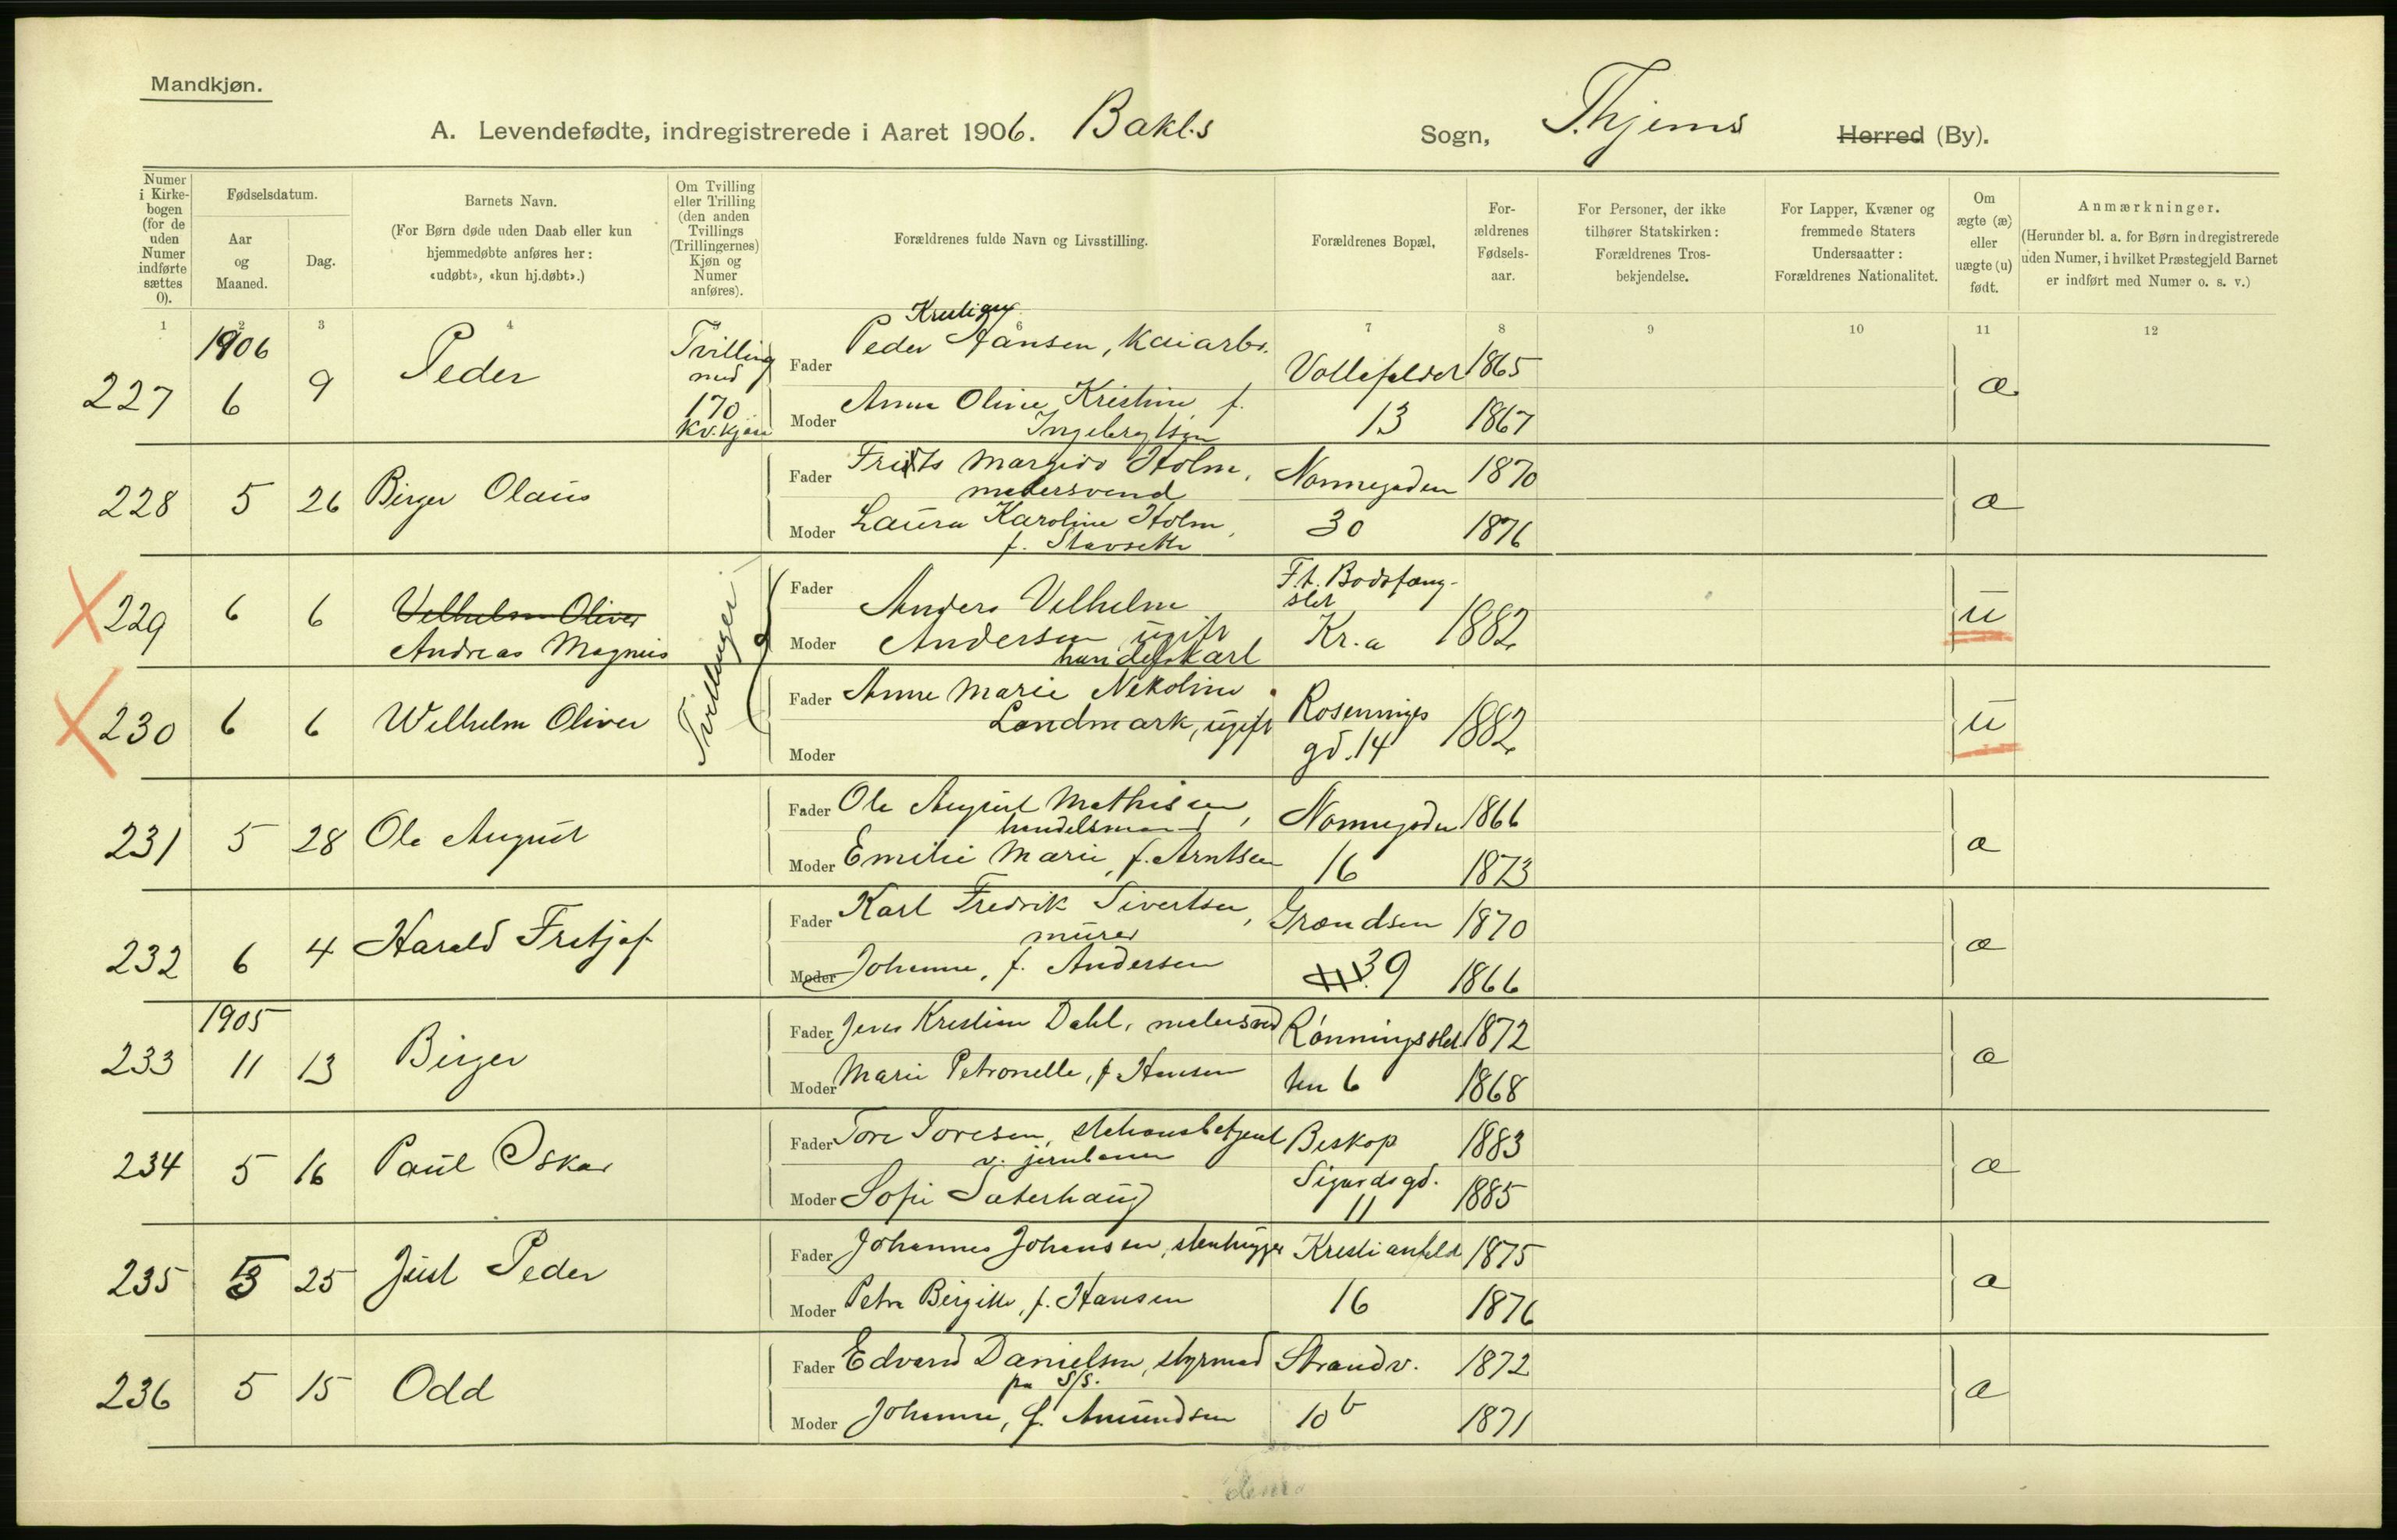 Mandkjøn.
A. Levendefødte, indregistrerede i Aaret 1906. Bakl.s Sogn, T.hjems Herred (By).
Numer i Kirkebogen (for de uden Numer indførte sættes 0).
Fødselsdatum.
Aar og Maaned.
Dag.
Barnets Navn.
(For Børn døde uden Daab eller kun hjemmedøbte anføres her: «udøbt», «kun hj.døbt».)
Om Tvilling eller Trilling (den anden Tvillings (Trillingernes) Kjøn og Numer anføres).
Forældrenes fulde Navn og Livsstilling.
Forældrenes Bopæl,
Forældrenes Fødselsaar.
For Personer, der ikke tilhører Statskirken: Forældrenes Trosbekjendelse.
For Lapper, Kvæner og fremmede Staters Undersaatter: Forældrenes Nationalitet.
Om ægte (æ) eller uægte (u) født.
Anmærkninger.
(Herunder bl. a. for Børn indregistrerede uden Numer, i hvilket Præstegjeld Barnet er indført med Numer o. s. v.)
1 2 3 4 6 7 8 9 10 11 12
1906
227 6 9 Peder
Tvilling
med
170
Kv.kjøn
Fader Peder Hansen, Kaiarb. 1865
Moder Anne Oline Kristine f. 13 1867
Ingebrigtsen
æ
228 5 26 Birger Olaus
Fader Frits Margido Holm, Nonnegaden 1870
malersvend
Moder Laura Karoline Holm, 30 1876
f. Stavseth
æ
229 6 6 Vilhelm Oliver
Andreas Magnus
Tvillinger
Fader Anders Vilhelm F.t. Bodsfængslet
Moder Andersen ugift, Kr.a 1882
handelskarl
u
230 6 6 Wilhelm Oliver
Fader Anne Marie Nikoline
Landmark, ugift
Moder gd. 14 1882
u
231 5 28 Ole August
Fader Ole August Mathisen, Nonnegaden 1866
handelsmand
Moder Emilie Marie, f. Arntsen 16 1873
æ
232 6 4 Harald Fritjof
Fader Karl Fredrik Sivertsen, Grændsen 1870
murer
Moder Johanne, f. Andersen 39 1866
æ
1905
233 11 13 Birger
Fader Jens Kristian Dahl, malersvd Rønningsslet 1872
Moder Marie Petronelle, f Hansen ten 6 1868
æ
234 5 16 Paul Oskar
Fader Tore Toresen, stationsbetjent Biskop 1883
v. jernbanen
Moder Sofie Sæterhaug Sigurdsgd. 11 1885
æ
235 5 25 Just Peder
Fader Johannes Johansen, stenhugger Kristianfeld 1875
Moder Petra Birgitte, f. Hansen 16 1876
æ
236 5 15 Odd
Fader Edvard Danielsen, styrmad Strandv. 1872
pa S/S.
Moder Johanne, f. Amundsen 10 b 1871
æ